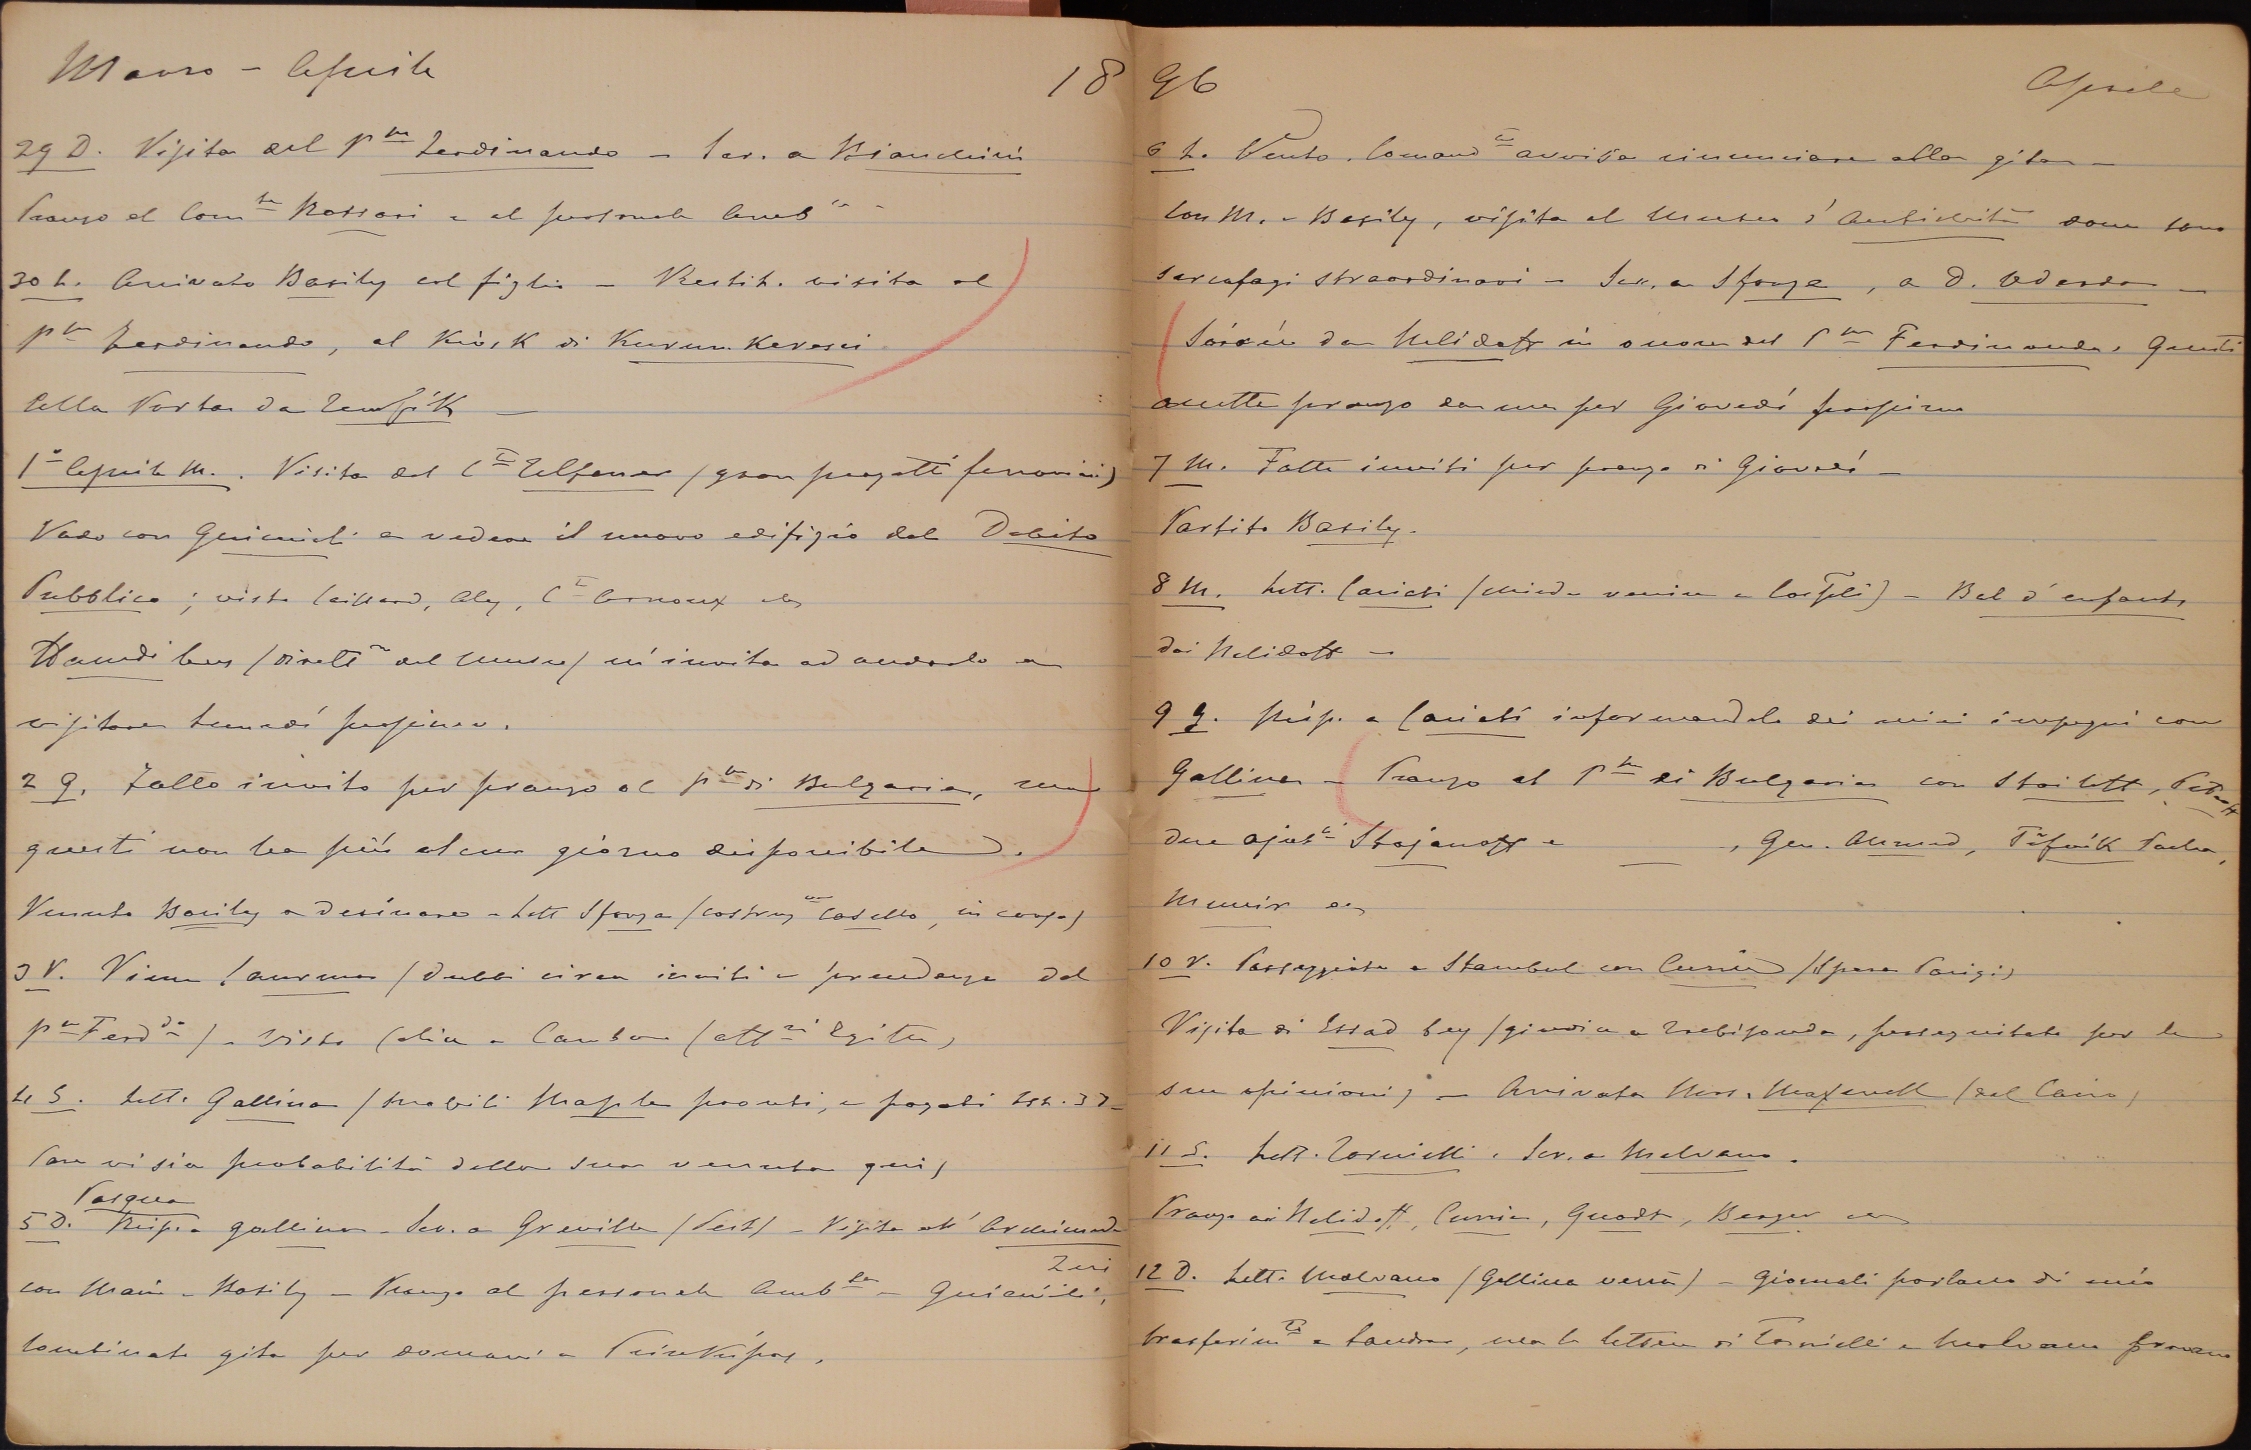 Marzo - Aprile 18
29 D. Visita del Ppe Ferdinando - Scr. a Bianchini
Pranzo al Comte Rossari e al personale Ambta -
30 L. Arrivato Basily col figlio - Restit. visita al
Ppe Ferdinando, al Kiosk di
Alla Porta da Tewfik -
1° Aprile M. . Visita del Cte Telfener (gran progetti ferroviari)
Vado con Guiccioli a vedere il nuovo edifizio del Debito
Pubblico ; visto Caillard, Aly, Cte Arnoux etc
Hamdi bey (Dirett.e del Museo) m'invita ad andarlo a
visitare lunedì prossimo.
2 G. Fatto invito per pranzo al Ppe di Bulgaria, ma
questi non ha più alcun giorno disponibile.
Venuto Basily a desinare - Lett Sforza (costruzne Casello, in corso)
3 V. Viene Saurma (dubbi circa inviti e precedenza del
Ppe Ferddo) - Visto Calice e Cambon (affri Egitto)
4 S. Lett. Gallina (mobili Maple pronti, e pagati Lst. 33 -
Pare vi sia probabilità della sua venuta qui)
Pasqua
5 D. Risp. a Gallina - Scr. a Greville (Pest) - Visita all'Archimede
con Main e Basily - Pranzo al personale Ambta - Guiccioli,
Zeri
Combinato gita per domani a Prinkipos.
96 Aprile
6 L. Vento. Comandte avvisa rinunciare alla gita -
Con M. e Basily, visita al Museo d'Antichità dove sono
sarcofagi straordinari - Scr. a Sforza, a D. Odardo -
Soirée da Nelidoff in onore del Ppe Ferdinando. Questi
accetta pranzo da me per Giovedì prossimo
7 M. Fatti inviti per pranzo di Giovedì -
Partito Basily.
8 M. Lett. Cariati (chiede venire a Costpli) - Bal d'enfants
dai Nelidoff -
9 G. Risp. a Cariati informandolo dei miei impegni con
Gallina - Pranzo al Ppe di Bulgaria con Stoiloff, Petroff
due ajuti Stojanoff e , Gen. Ahmed, Tefvik Pacha,
Munir etc
10 V. Passeggiata a Stambul con Currie (spera Parigi)
Visita di Essad bey (giudice a Trebisonda, perseguitato per le
sue opinioni) - Arrivata Mrs. Maxwell (dal Cairo)
11 S. Lett. Tornielli . Scr. a Malvano.
Pranzo ai Nelidoff, Currie, Guodt, Berger etc
12 D. Lett. Malvano (Gallina verrà) - Giornali parlano di mio
trasferimto a Londra, ma le lettere di Tornielli e Malvano provano